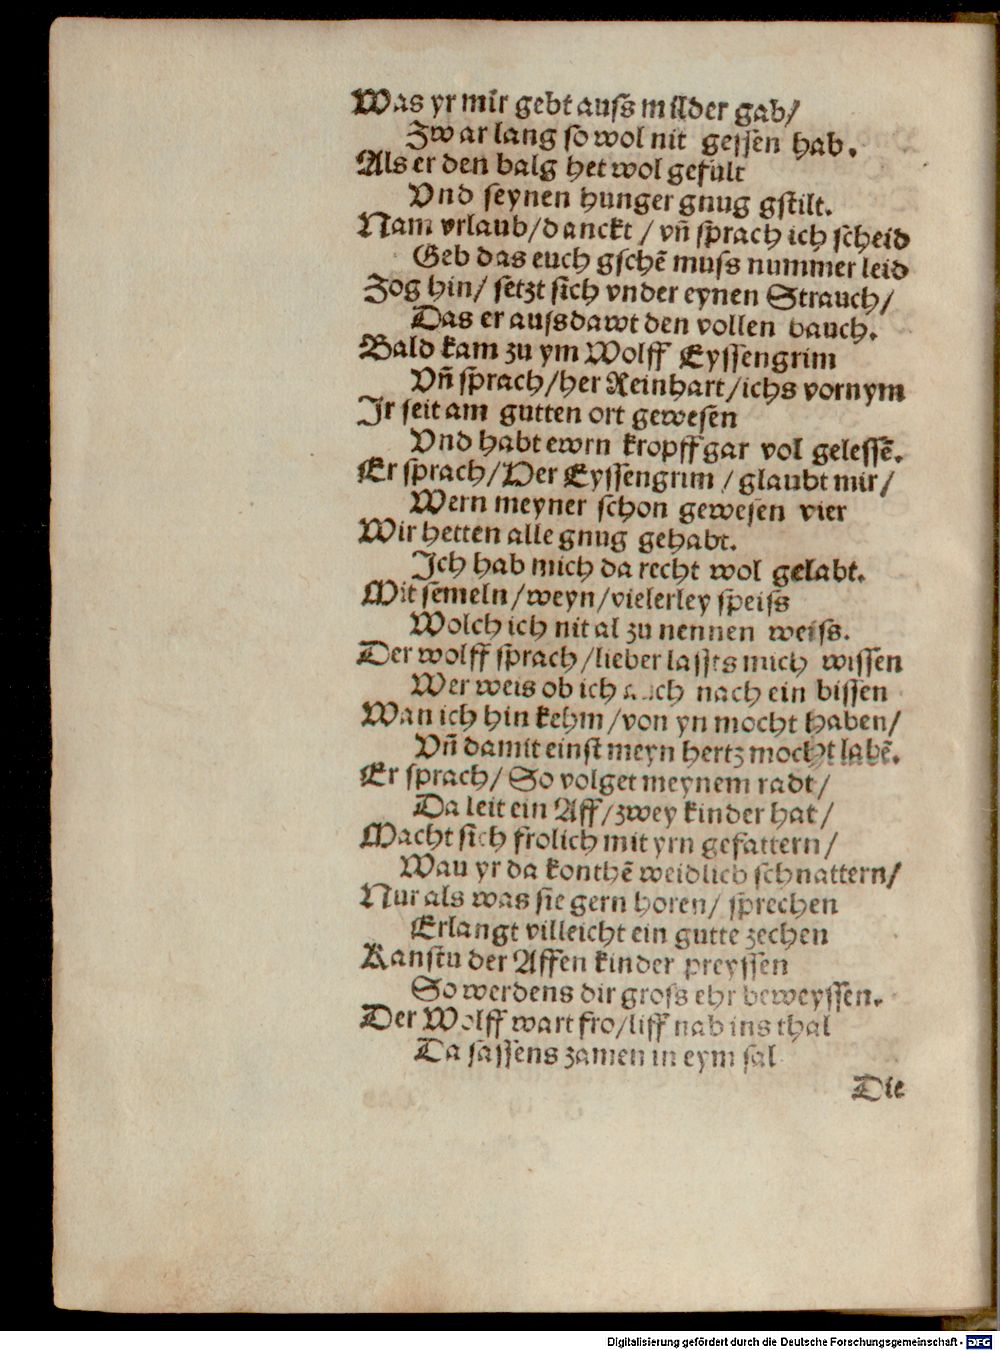 Was yr mir gebt auſs milder gab/
Zwar lang ſo wol nit geſſen hab.
Als er den balg het wol gefult
Vnd ſeynen hunger gnug gſtilt.
Nam vrlaub/danckt / vñ ſprach ich ſcheid
Geb das euch gſchẽ muſs nummer leid
Zog hin/ ſetzt ſich vnder eynen Strauch/
Das er auſsdawt den vollen bauch.
Bald kam zu ym Wolff Eyſſengrim
Vñ ſprach/her Reinhart/ichs vornym
Ir ſeit am gutten ort geweſen
Vnd habt ewrn kropff gar vol geleſſẽ.
Er ſprach/Her Eyſſengrim / glaubt mir/
Wern meyner ſchon geweſen vier
Wir hetten alle gnug gehabt.
Ich hab mich da recht wol gelabt.
Mit ſemeln/weyn/vielerley ſpeiſs
Wolch ich nit al zu nennen weiſs.
Der wolff ſprach/lieber laſſts mich wiſſen
Wer weis ob ich auch nach ein biſſen
Wan ich hin kehm/von yn mocht haben/
Vñ damit einſt meyn hertz mocht labẽ.
Er ſprach/ So volget meynem radt/
Da leit ein Aff/zwey kinder hat/
Macht ſich frolich mit yrn gefattern/
Wau yr da konthẽ weidlich ſchnattern/
Nur als was ſie gern horen/ ſprechen
Erlangt villeicht ein gutte zechen
Kanſtu der Affen kinder preyſſen
So werdens dir groſs ehr beweyſſen.
Der Wolff wart fro/liff nab ins thal
Da ſaſſens zamen in eym ſal
Die
Digitalisierung gefördert durch die Deutsche Forschungsgemeinschaft - DFG